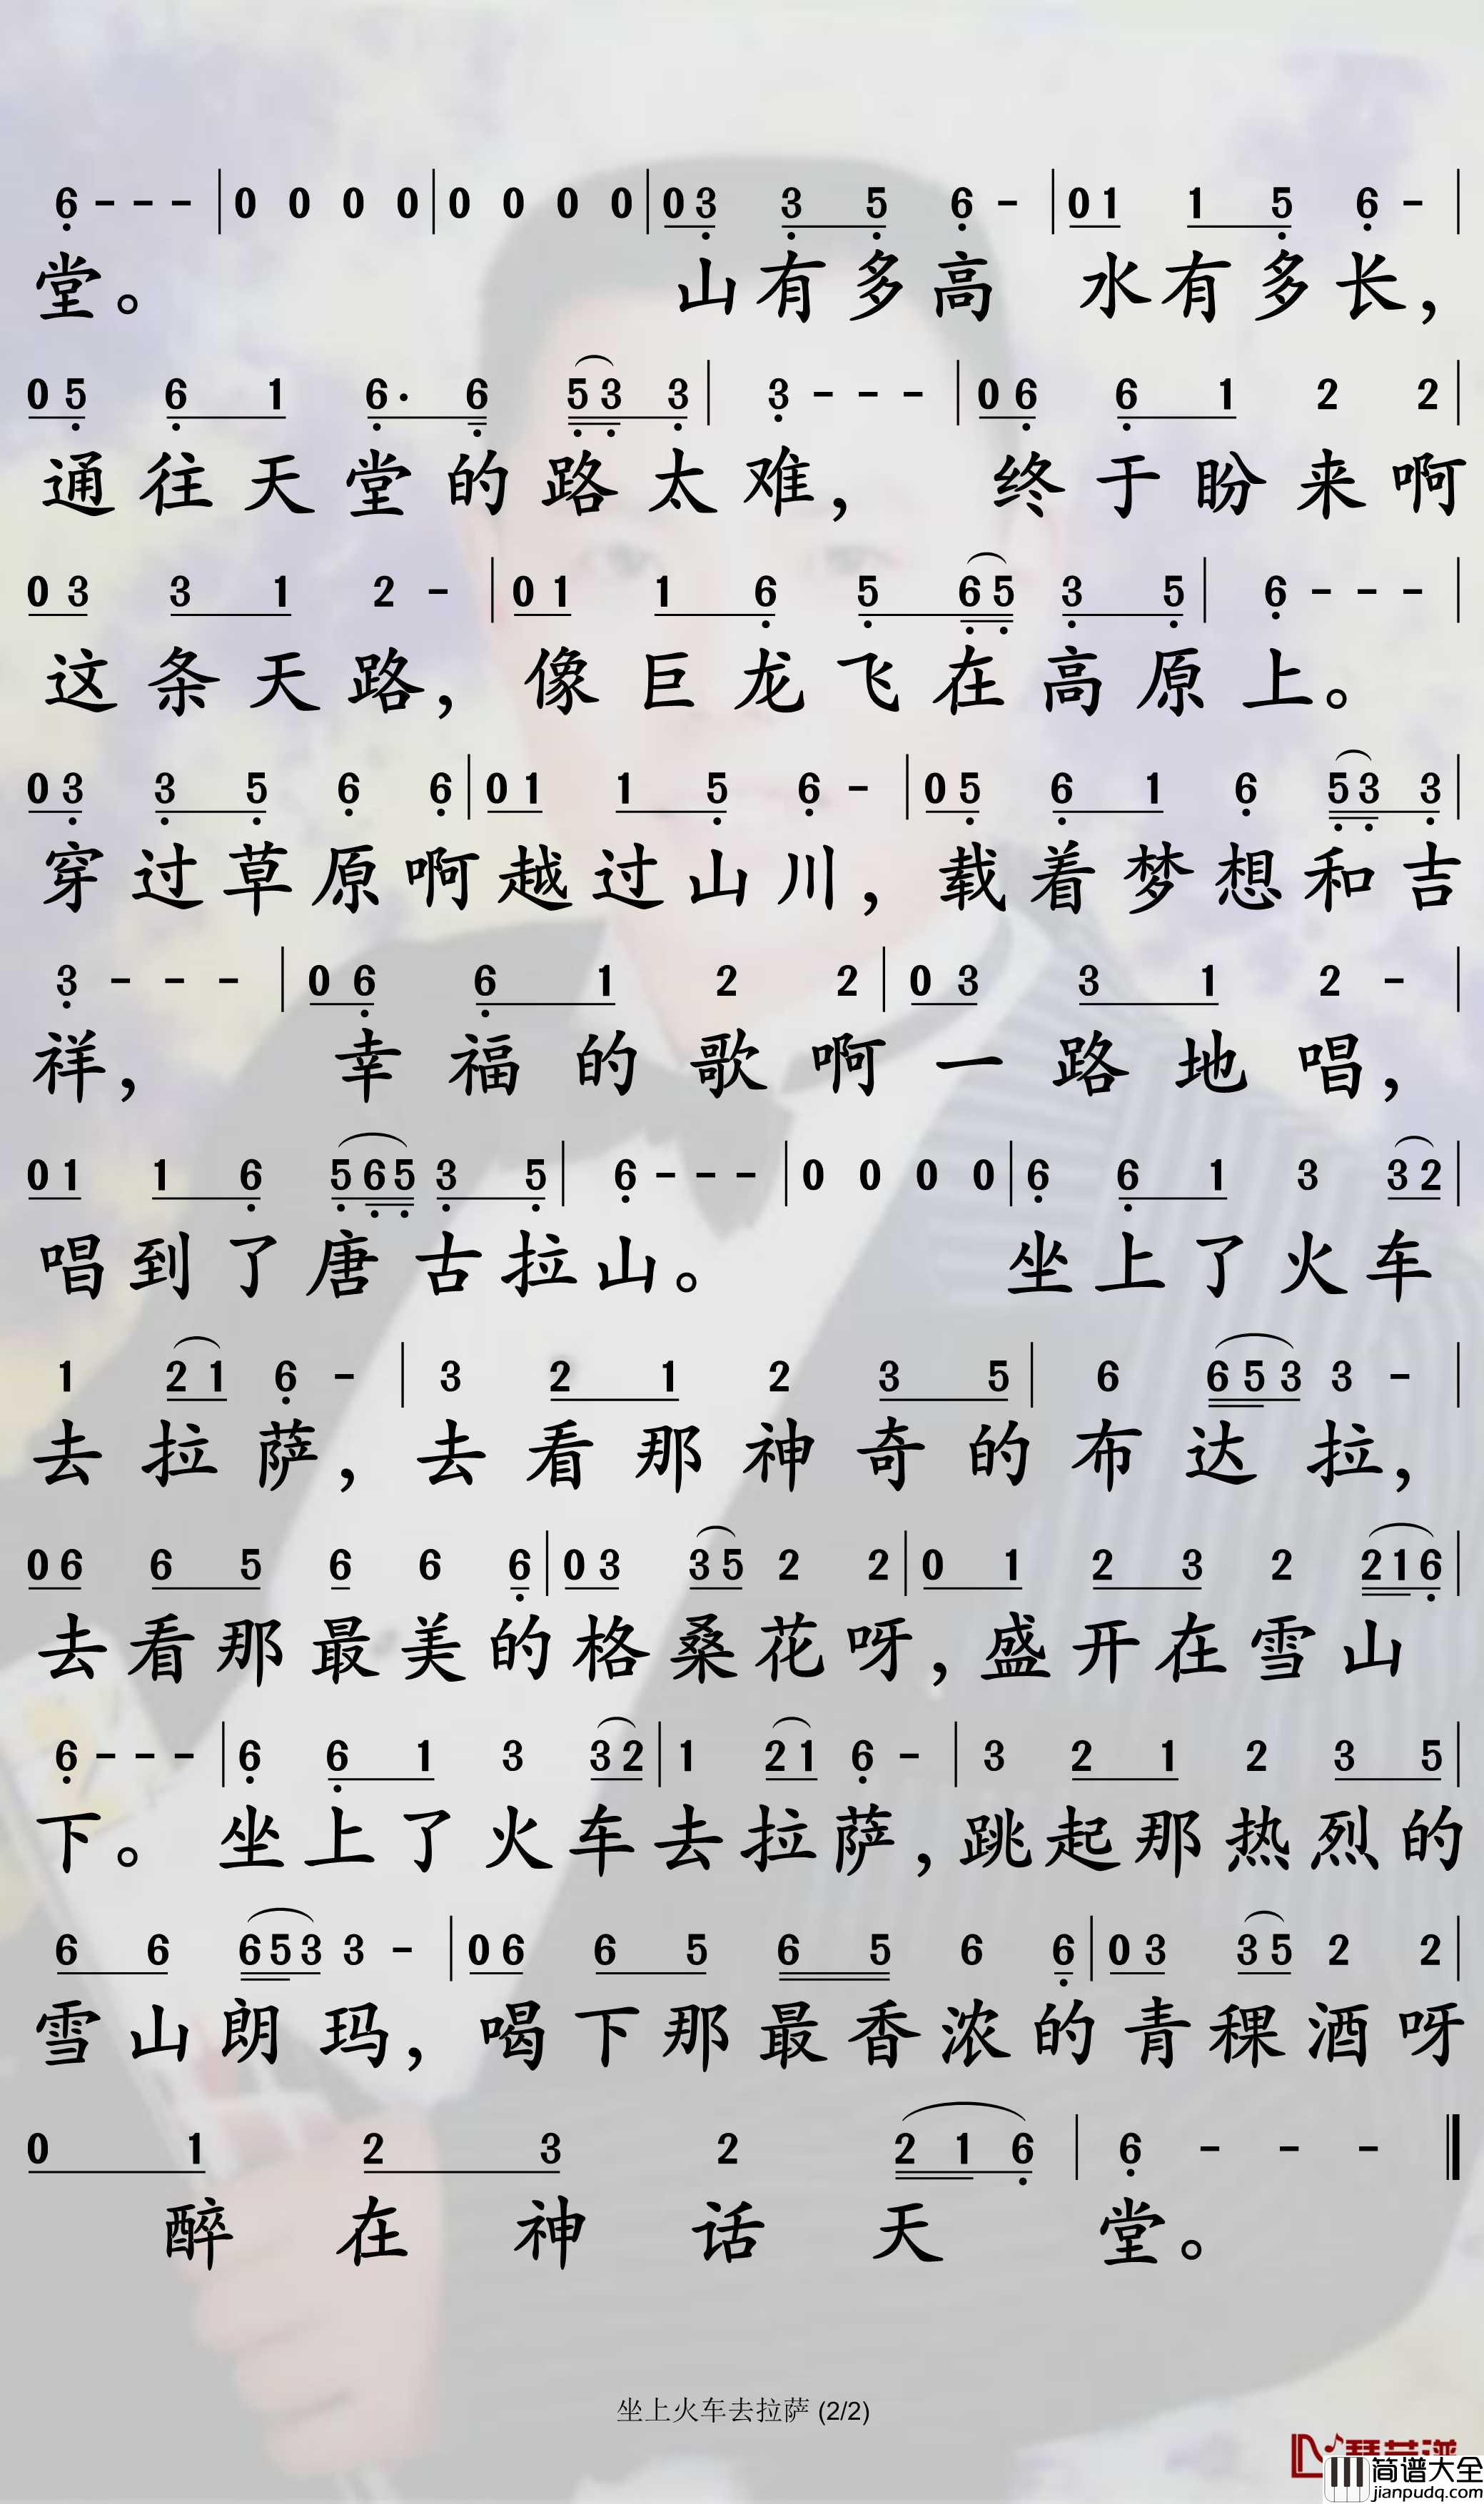 6 - - - | 0 0 0 0 | 0 0 0 0 | 0 3 3 5 6 - | 0 1 1 5 6 - |
堂。 山有多高 水有多长，
0 5 6 1 6· 6 5 3 3 | 3 - - - | 0 6 6 1 2 2 |
通往天堂的路太难， 终于盼来啊
0 3 3 1 2 - | 0 1 1 6 5 6 5 3 5 | 6 - - - |
这条天路，像巨龙飞在高原上。
0 3 3 5 6 6 | 0 1 1 5 6 - | 0 5 6 1 6 5 3 3 |
穿过草原啊越过山川，载着梦想和吉
3 - - - | 0 6 6 1 2 2 | 0 3 3 1 2 - |
祥， 幸福的歌啊一路地唱，
0 1 1 6 5 6 5 3 5 | 6 - - - | 0 0 0 0 | 6 6 1 3 3 2 |
唱到了唐古拉山。 坐上了火车
1 2 1 6 - | 3 2 1 2 3 5 | 6 6 5 3 3 - |
去拉萨，去看那神奇的布达拉，
0 6 6 5 6 6 6 | 0 3 3 5 2 2 | 0 1 2 3 2 2 1 6 |
去看那最美的格桑花呀，盛开在雪山
6 - - - | 6 6 1 3 3 2 | 1 2 1 6 - | 3 2 1 2 3 5 |
下。坐上了火车去拉萨，跳起那热烈的
6 6 6 5 3 3 - | 0 6 6 5 6 5 6 6 | 0 3 3 5 2 2 |
雪山朗玛，喝下那最香浓的青稞酒呀
0 1 2 3 2 2 1 6 | 6 - - - ‖
醉在神话天堂。
坐上火车去拉萨 (2/2)
简谱大全
jianpudq.com